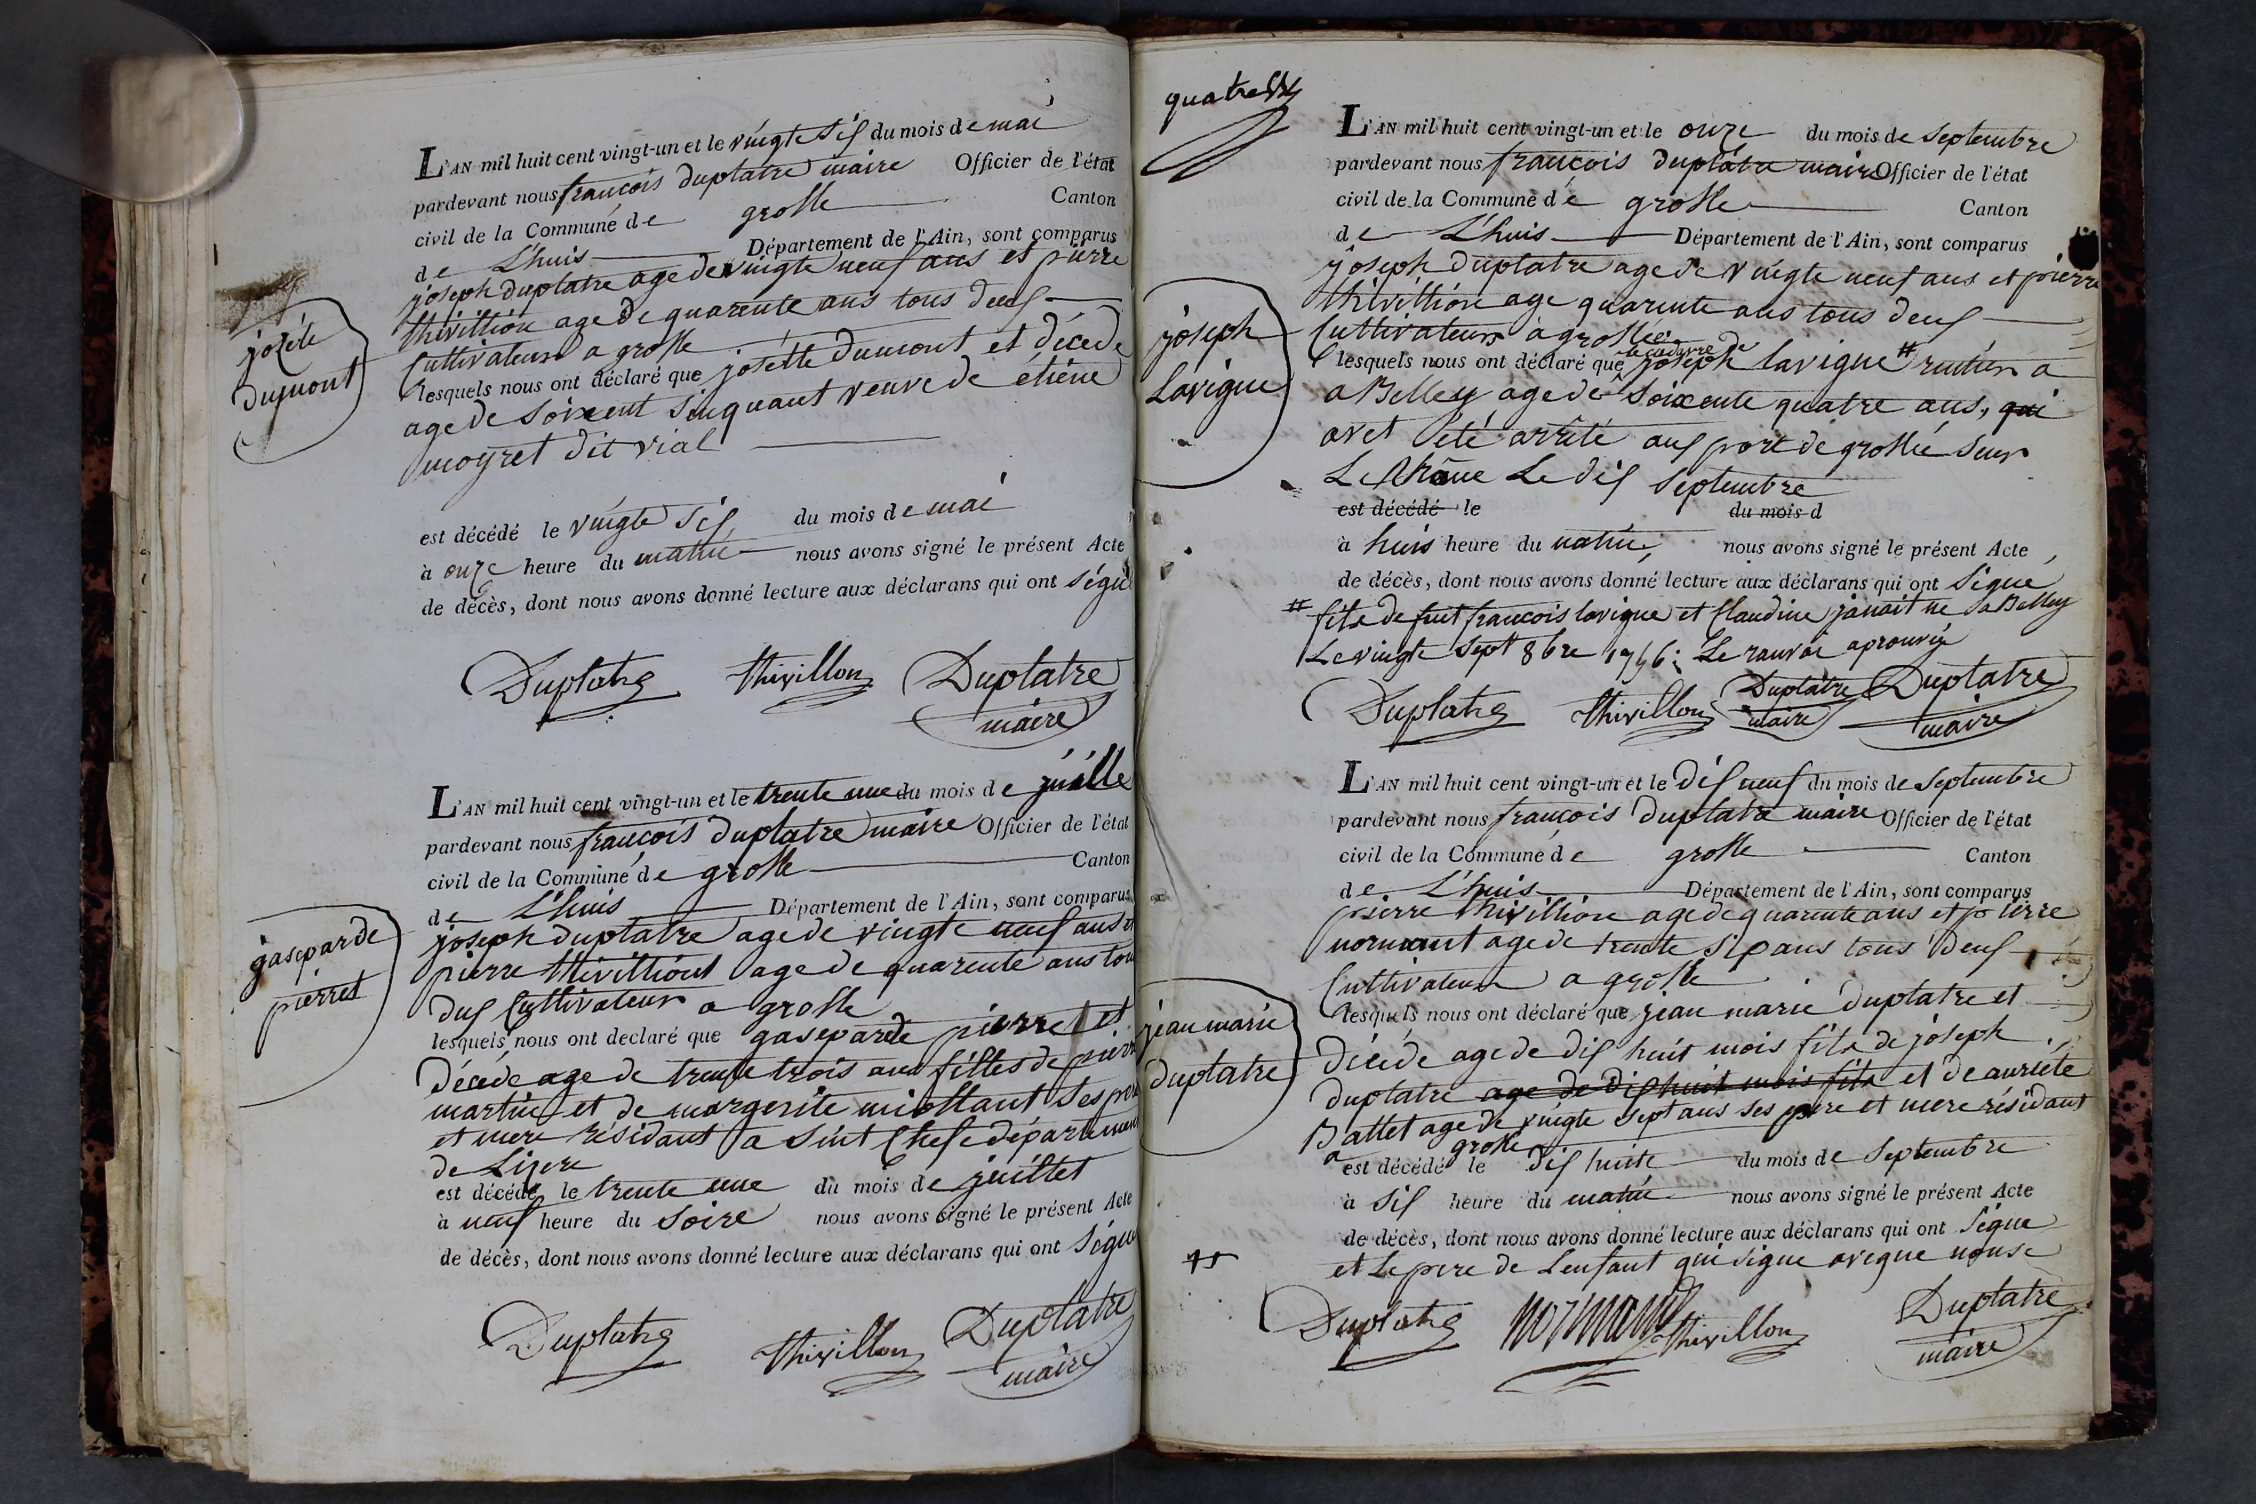 L'AN mil huit cent vingt-un et le vingte sis du mois de mai
pardevant nous francois duplatre maire Officier de l'état
civil de la Commune de grolle Canton
de L'huis Département de l'Ain, sont comparus
joseph duplatre age de vingte neuf ans et pierre
thivillion age de quarente ans tous deus
Cultivateurs a grolle
lesquels nous ont déclaré que josette dumont et décede
age de soixent sinquant veuve de étiene
moyret dit vial
est décédé le vingte sis du mois de mai
à onze heure du matin nous avons signé le présent Acte
de décès, dont nous avons donné lecture aux déclarans qui ont signe
josete
dumont
Duplatre thivillon Duplatre
maire
L'AN mil huit cent vingt-un et le trente une du mois de juille
pardevant nous francois duplatre maire Officier de l'état
civil de la Commune de grolle Canton
de L'huis Département de l'Ain, sont comparus
joseph duplatre age de vingte neuf ans et
pierre thivilliont age de quarente ans tous
dus Cultivateurs a grolle
lesquels nous ont declaré que gasparde pierret et
décede age de trente trois ans filles de pierre
martin et de margerite miollant ses pere
et mere résidant a sint Chefe département
de Lizere
est décédé le trente une du mois de juillet
à neuf heure du soire nous avons signé le présent Acte
de décès, dont nous avons donné lecture aux déclarans qui ont signe
gasparde
pierret
Duplatre thivillon Duplatre
maire
quatre
L'AN mil huit cent vingt-un et le onze du mois de septembre
pardevant nous francois duplatre maire Officier de l'état
civil de la Commune de grolle Canton
de L'huis Département de l'Ain, sont comparus
joseph duplatre age de vingte neuf ans et pierre
thivillion age quarente ans tous deus
Cultivateurs à grollée
lesquels nous ont déclaré que joseph lavigne # rentier a
a Belley age de soixente quatre ans, qui
avet été arrêté aus port de grollié sur
Le Rhône Le dis septembre
est décédé le du mois d
à huis heure du matin nous avons signé le présent Acte
de décès, dont nous avons donné lecture aux déclarans qui ont signe
# fils de fut francois lavigne et Claudine janait ne a Belley
Le vingte sept 8bre 1756 ; Le ranvoi aprouvée
joseph
Lavigne
Duplatre thivillon Duplâtre Duplatre
maire maire
L'AN mil huit cent vingt-un et le dis neuf du mois de septembre
pardevant nous francois duplatre maire Officier de l'état
civil de la Commune de grolle Canton
de L'huis Département de l'Ain, sont comparus
pierre thivillion age de quarente ans et pierre
normant age de trente sis ans tous deus
Cultivateurs a grolle
lesquels nous ont déclaré que jean marie duplatre et
décéde age de dis huit mois fils de joseph
duplatre age de dis huit mois fils et de auriéte
Ballet age de vingte sept ans ses pere et mere résidant
a grolle
est décédé le dis huite du mois de septembre
à sis heure du matin nous avons signé le présent Acte
de décès, dont nous avons donné lecture aux déclarans qui ont signe
et le pere de Lenfant qui signe aveque nouse
jean marie
duplatre
Duplatre normand thivillon Duplatre
maire